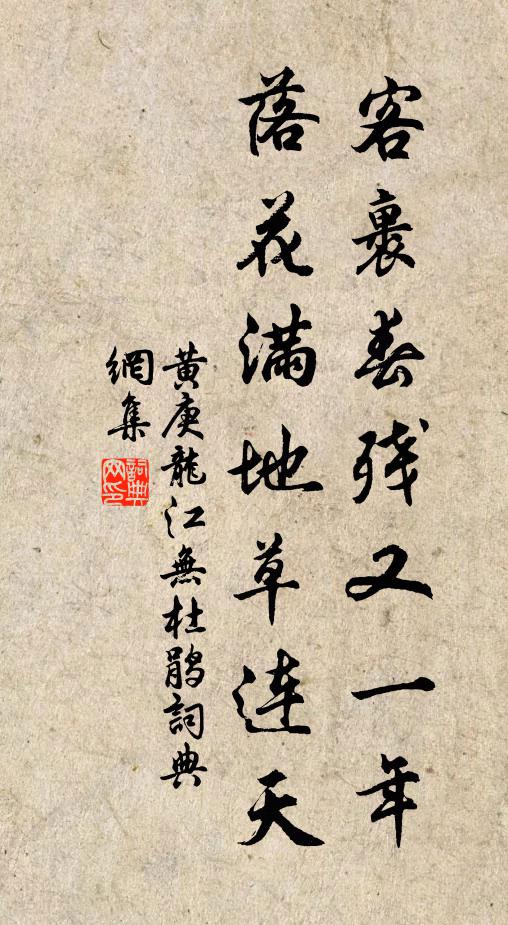 客裏春残又一年
落花滿地草連天
黄庚龍江無杜鵑詞典
網集
詞典網印